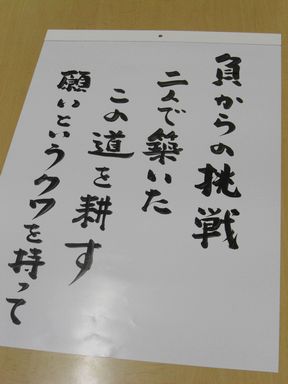 負からの挑戦
二人で築いた
この道を耕す
願いというクワを持って